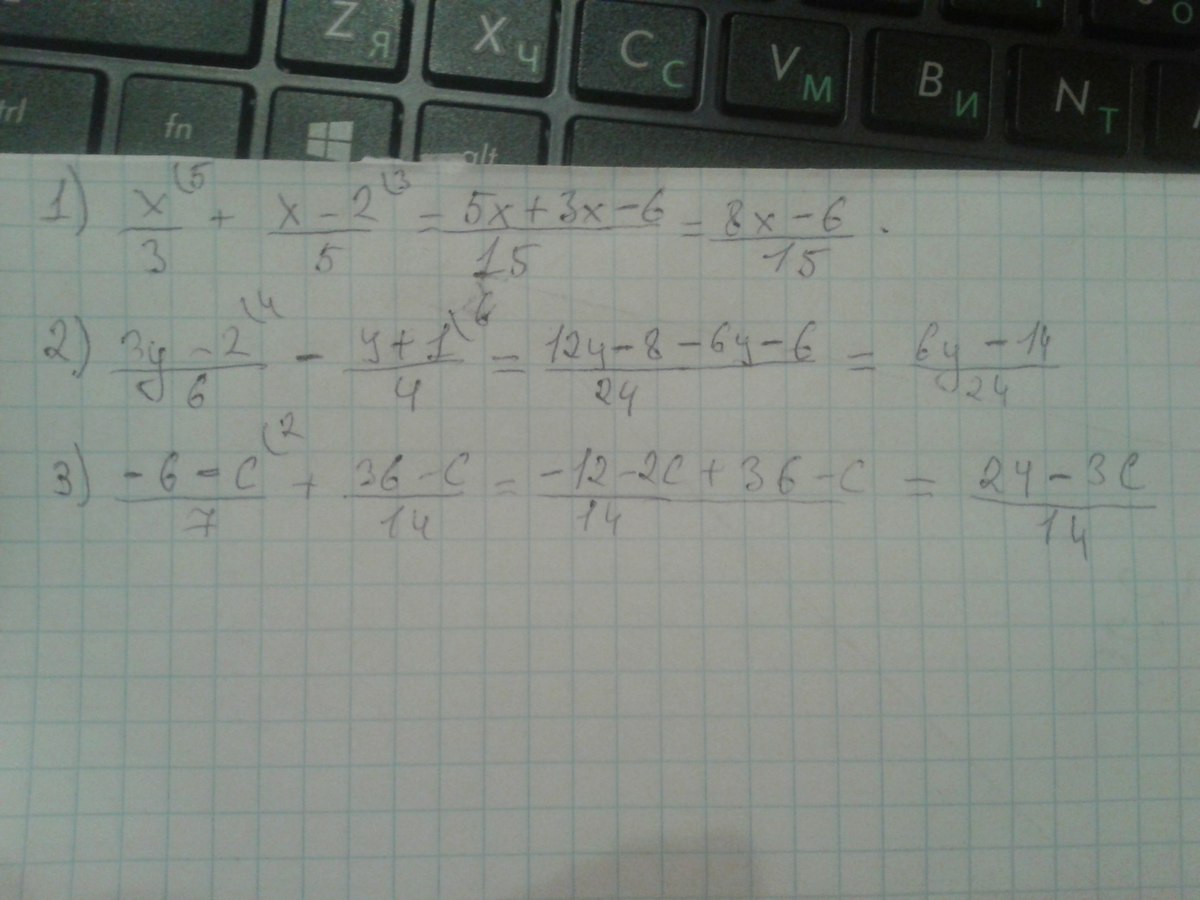 Z Я X Ч C С V М B И N Т
trl fn alt
1) x/3 (5 + x-2/5 (3 = 5x+3x-6/15 = 8x-6/15 .
2) 3y-2/6 (4 - y+1/4 (6 = 12y-8-6y-6/24 = 6y-14/24
3) -6-c/7 (2 + 36-c/14 = -12-2c+36-c/14 = 24-3c/14